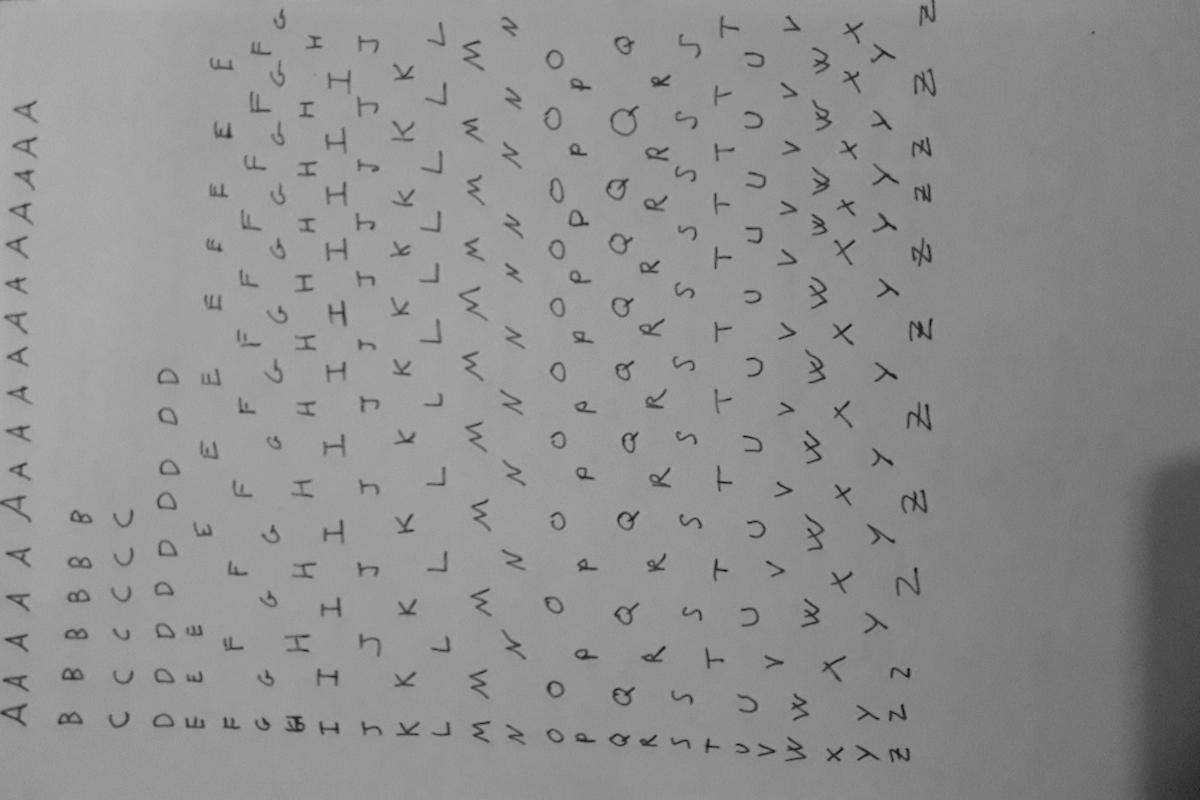 A A A A A A A A A A A A A A A A A
B B B B B B
C C C C C C
D D D D D D D D D
E E E E E E E E E E E
F F F F F F F F F F F
G G G G G G G G G G G G
H H H H H H H H H H H
I I I I I I I I I I I
J J J J J J J J J J J
K K K K K K K K K K K
L L L L L L L L L L L
M M M M M M M M M M M
N N N N N N N N N N N
O O O O O O O O O O O
P P P P P P P P P P
Q Q Q Q Q Q Q Q Q Q Q
R R R R R R R R R R
S S S S S S S S S S S
T T T T T T T T T T T
U U U U U U U U U U U
V V V V V V V V V V
W W W W W W W W W W W
X X X X X X X X X X X
Y Y Y Y Y Y Y Y Y Y Y
Z Z Z Z Z Z Z Z Z Z Z Z